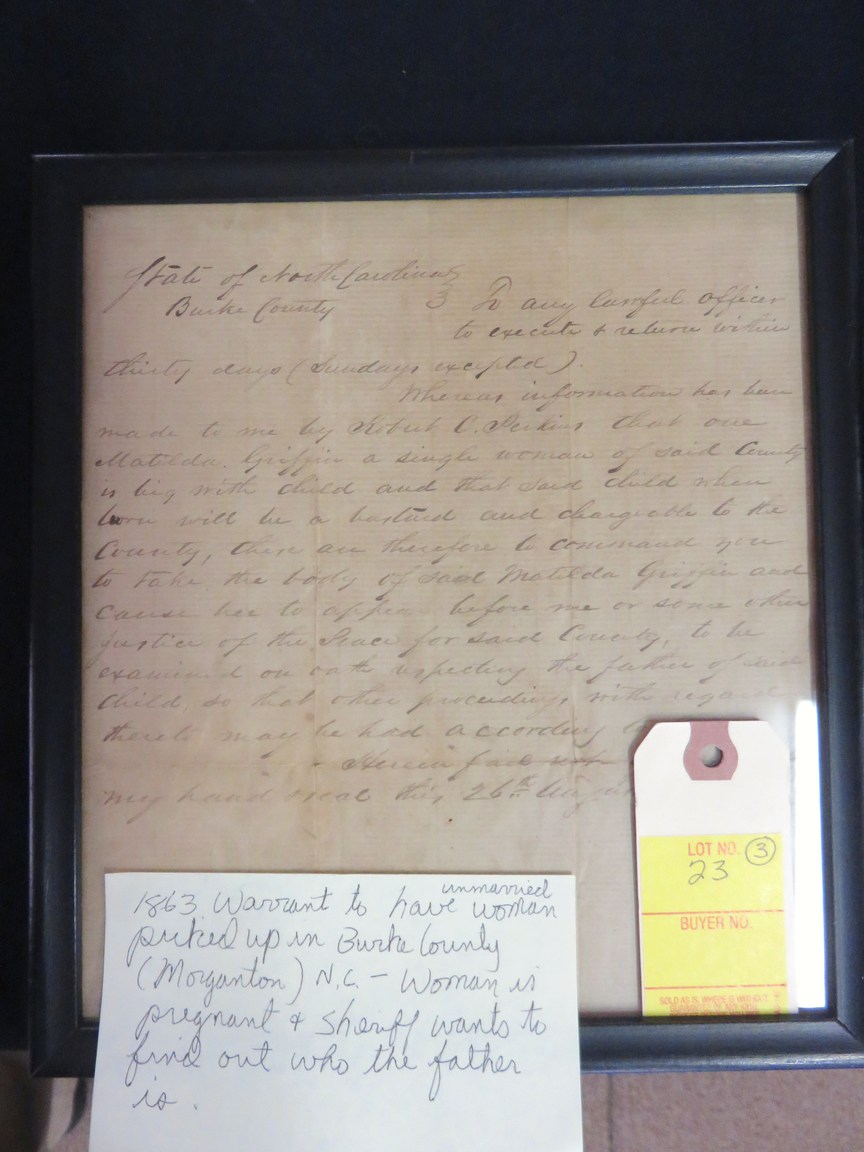 State of North Carolina
Burke County } To any lawful officer
to execute & return within
thirty days (Sundays excepted).
Whereas information has been
made to me by Robert C. Perkins that one
Matilda Griffin a single woman of said County
is big with child and that said child when
born will be a bastard and chargeable to the
County, these are therefore to command you
to take the body of said Matilda Griffin and
cause her to appear before me or some other
justice of the Peace for said County, to be
examined on oath respecting the father of said
child, so that other proceedings with regard
thereto may be had according
Herein fail not
my hand & seal this 26th
LOT NO. 3
23
BUYER NO.
SOLD AS IS WHERE IS WITHOUT
1863 Warrant to have unmarried woman
picked up in Burke County
(Morganton) N.C. – Woman is
pregnant & sheriff wants to
find out who the father
is.